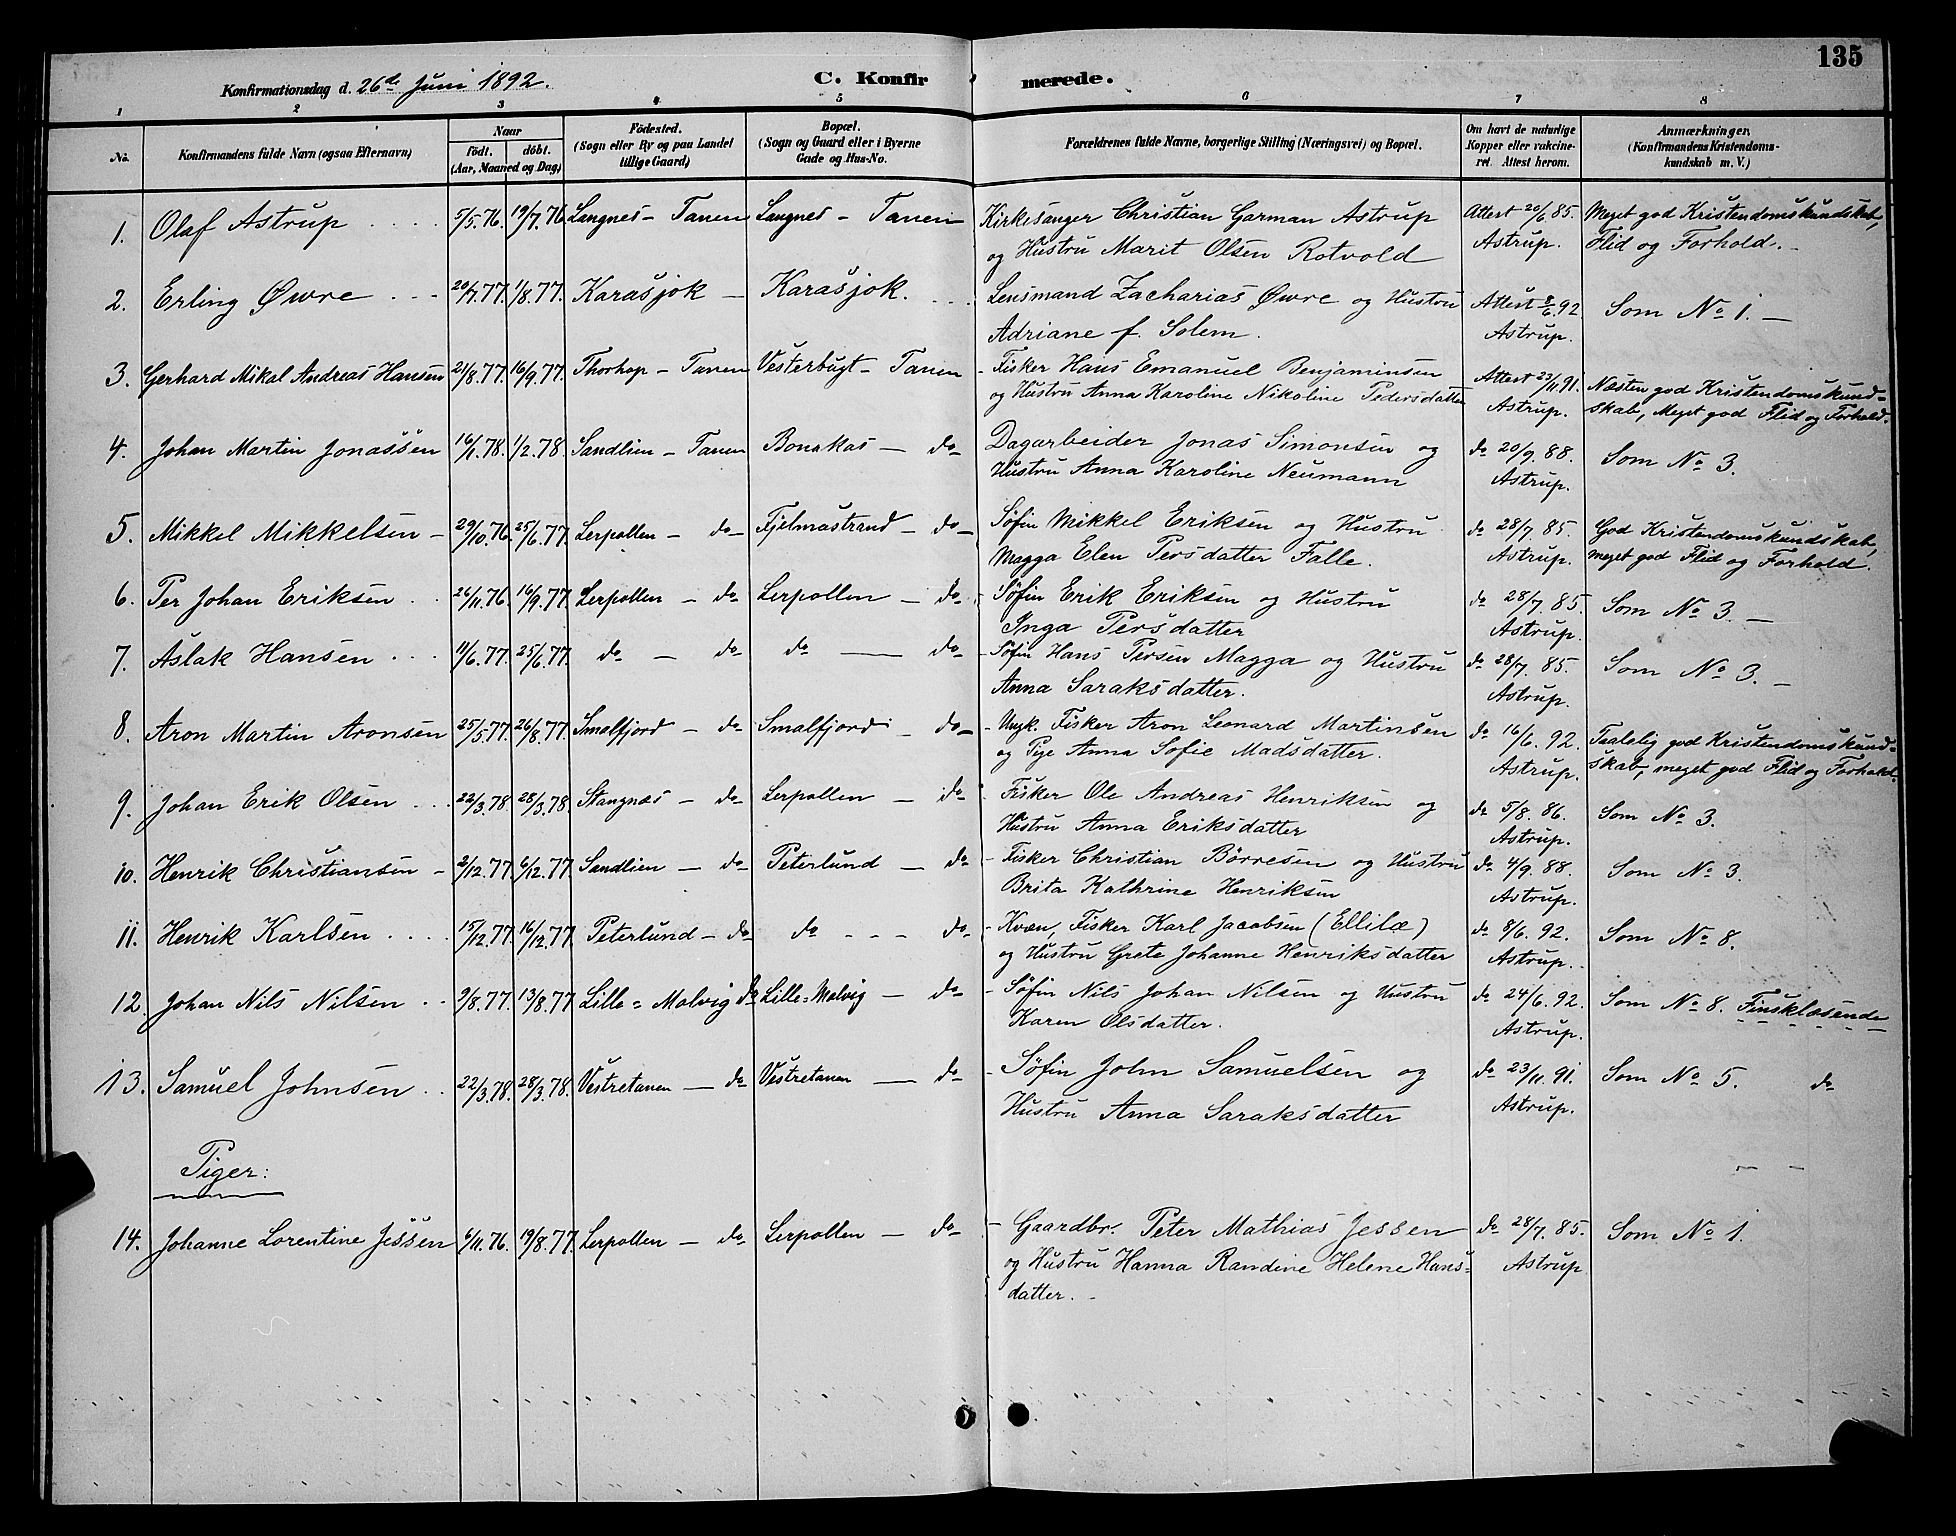 135
Konfirmationsdag d. 26de Juni 1892.
C. Konfirmerede.
1 2 3 4 5 6 7 8
No. Konfirmandens fulde Navn (ogsaa Efternavn) Naar födt. döbt. (Aar, Maaned og Dag) Födested. (Sogn eller By og paa Landet tillige Gaard) Bopæl. (Sogn og Gaard eller i Byerne Gade og Hus-No. Forældrenes fulde Navne, borgerlige Stilling (Næringsvei) og Bopæl. Om havt de naturlige Kopper eller vakcineret. Attest herom. Anmærkninger. (Konfirmandens Kristendomskundskab m. V.)
1. Olaf Astrup 5/5.76. 19/7.76 Langnes - Tanen Langnes - Tanen Kirkesanger Christian Garman Astrup Attest 20/6 85. Meget god Kristendomskundskab,
og Hustru Marit Olsen Rotvold Astrup. Flid og Forhold.
2. Erling Øwre 20/7.77. 1/8.77. Karasjok Karasjok. Lensmand Zacharias Øwre og Hustru Attest 8/6.92 Som No 1.
Adriane f. Solem. Astrup.
3. Gerhard Mikal Andreas Hansen 21/8.77. 16/9.77. Thorhop - Tanen Vesterbugt - Tanen - Fisker Hans Emanuel Benjaminsen Attest 23/11 91. Næsten god Kristendomskund-
og Hustru Anna Karoline Nikoline Pedersdatter Astrup. skab, Meget god Flid og Forhold.
4. Johan Martin Jonassen 16/1.78. 1/2.78. Sandlien - Tanen Bonakas - do Dagarbeider Jonas Simonsen og do 20/9. 88. Som No 3.
Hustru Anna Karoline Neumann Astrup.
5. Mikkel Mikkelsen 29/10.76. 25/6.77. Lerpollen - do Fjelmastrand - do Søfin Mikkel Eriksen og Hustru do 28/7. 85. God Kristendomskundskab,
Magga Elen Persdatter Falle. Astrup. meget god Flid og Forhold.
6. Per Johan Eriksen 26/11.76. 16/9.77. Lerpollen - do Lerpollen - do - Søfin Erik Eriksen og Hustru do 28/7. 85. Som No 3.
Inga Persdatter Astrup.
7. Aslak Hansen 11/6.77. 25/6.77. do - do do - do - Søfin Hans Persen Magga og Hustru do 28/7. 85. Som No 3.
Anna Saraksdatter. Astrup.
8. Aron Martin Aronsen 25/5.77. 26/8.77. Smalfjord - do Smalfjord - do - Ungk. Fisker Aron Leonard Martinsen do 16/6. 92. Taalelig god Kristendomskund-
og Pige Anna Sofie Madsdatter. Astrup. skab, meget god Flid og Forhold.
9. Johan Erik Olsen 22/3.78. 28/3.78. Stangnæs - do Lerpollen - do - Fisker Ole Andreas Henriksen og do 5/8. 86. Som No 3.
Hustru Anna Eriksdatter Astrup.
10. Henrik Christiansen 2/12.77. 6/12.77. Sandlien - do Peterlund - do - Fisker Christian Börresen og Hustru do 4/9. 88. Som No 3.
Brita Kathrine Henriksen Astrup.
11. Henrik Karlsen 15/12.77. 16/12.77. Peterlund - do do - do - Kvæn, Fisker Karl Jacobsen (Ellilæ) do 8/6. 92. Som No 8.
og Hustru Grete Johanne Henriksdatter Astrup.
12. Johan Nils Nilsen 9/8.77. 13/8.77 Lille=Molvig do Lille=Molvig - do - Søfin Nils Johan Nilsen og Hustru do 24/6. 92. Som No 8. Finsklæsende
Karen Olsdatter. Astrup.
13. Samuel Johnsen 22/3.78. 28/3.78. Vestretanen - do Vestretanen - do - Søfin John Samuelsen og do 23/11. 91. Som No 5. do
Hustru Anna Saraksdatter Astrup.
Piger:
14. Johanne Lorentine Jessen 6/11.76. 19/8.77. Lerpollen - do Lerpollen - do - Gaardbr. Peter Mathias Jessen do 28/7. 85. Som No 1.
og Hustru Hanna Randine Helene Hans- Astrup
datter.